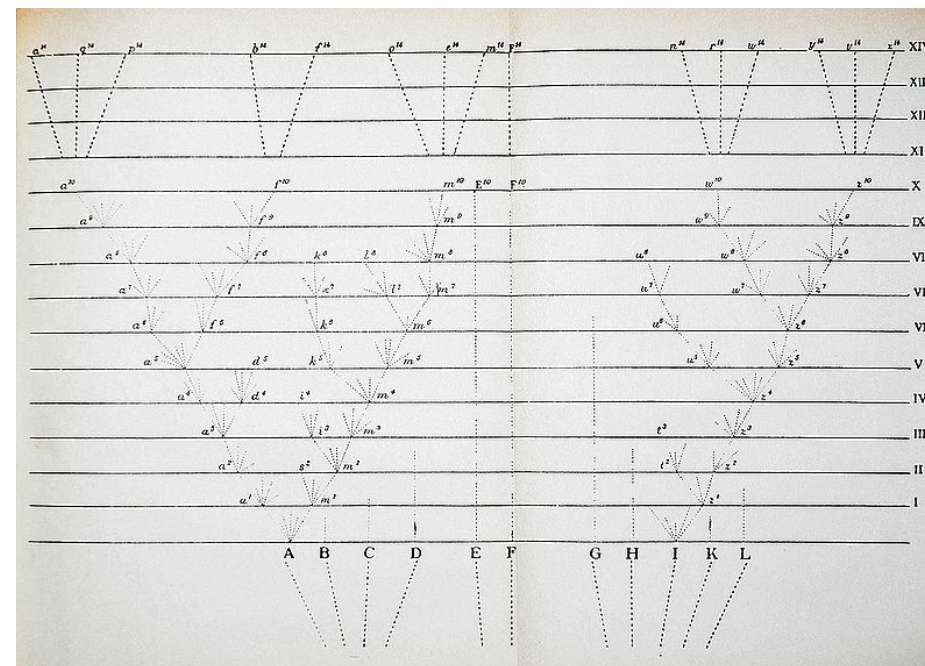 a¹⁴ q¹⁴ p¹⁴ b¹⁴ f¹⁴ o¹⁴ e¹⁴ m¹⁴ F¹⁴ n¹⁴ r¹⁴ w¹⁴ y¹⁴ v¹⁴ z¹⁴ XIV
XII
XI
a¹⁰ f¹⁰ m¹⁰ E¹⁰ F¹⁰ w¹⁰ z¹⁰ X
a⁹ f⁹ m⁹ w⁹ z⁹ IX
a⁸ f⁸ k⁸ l⁸ m⁸ u⁸ w⁸ z⁸ VI
a⁷ f⁷ l⁷ m⁷ u⁷ w⁷ z⁷ VI
a⁶ f⁶ k⁶ m⁶ u⁶ z⁶ VI
a⁵ d⁵ k⁵ m⁵ u⁵ z⁵ V
d⁴ i⁴ m⁴ z⁴ IV
a³ i³ m³ t³ z³ III
a² s² m² t² z² II
a¹ m¹ z¹ I
A B C D E F G H I K L